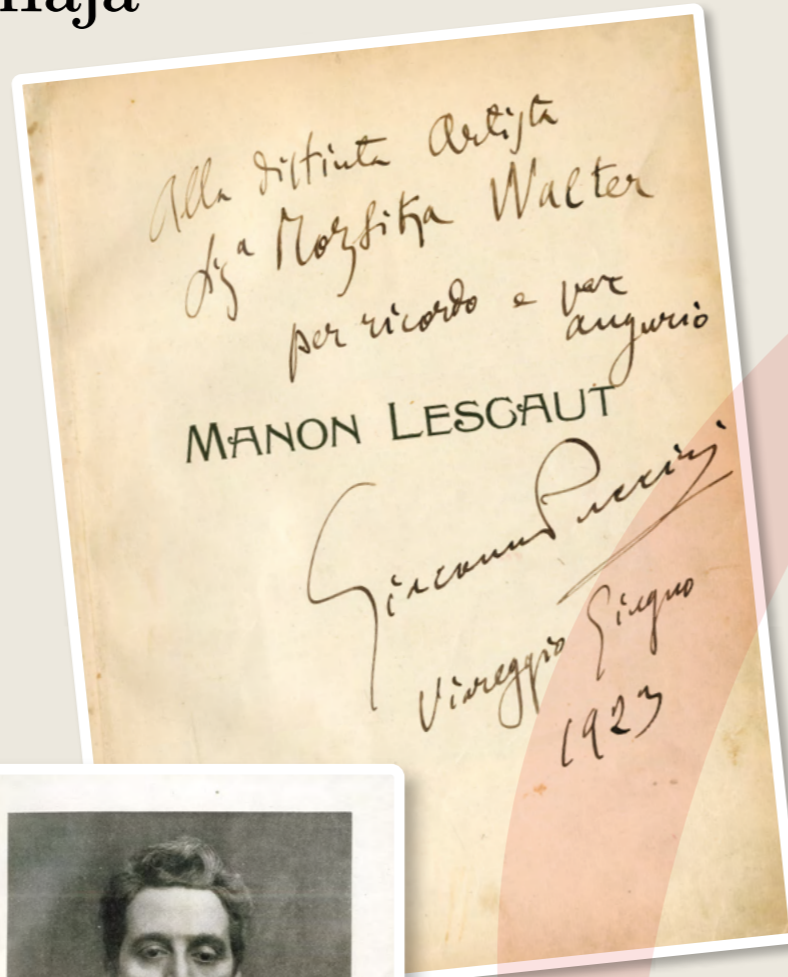 Alla distinta Artista
Sigª Walter
per ricordo e per
augurio
MANON LESCAUT
Giacomo Puccini
Viareggio Giugno
1923